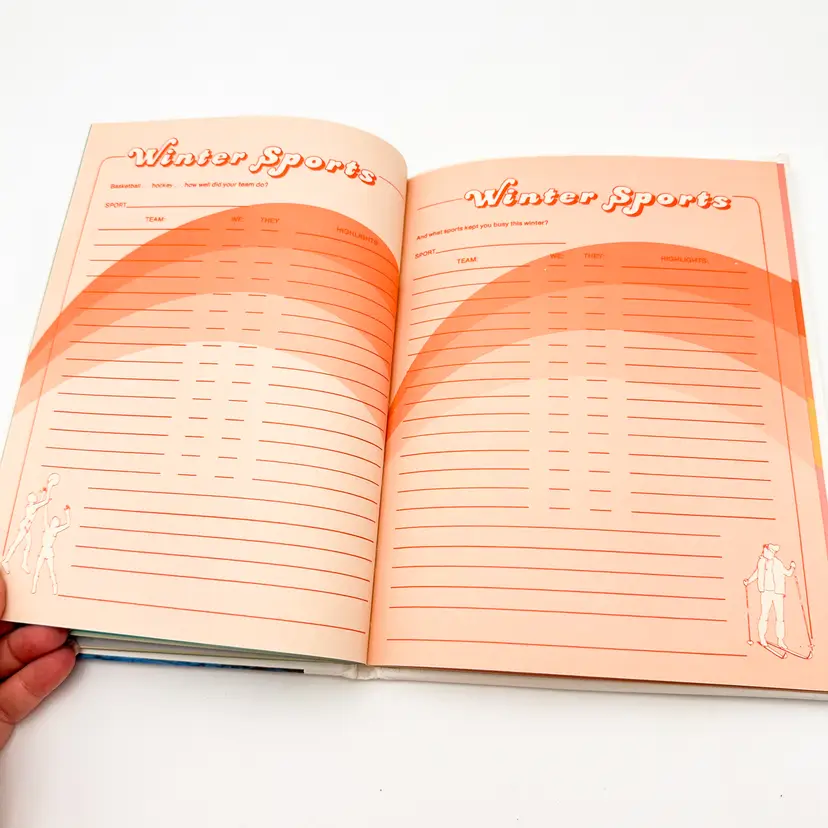 Winter Sports
Basketball . . . hockey . . . how well did your team do?
SPORT
TEAM: WE: THEY: HIGHLIGHTS:
Winter Sports
And what sports kept you busy this winter?
SPORT
TEAM: WE: THEY: HIGHLIGHTS: